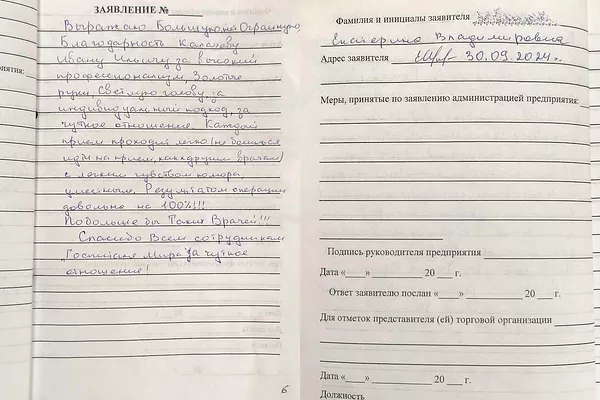 ЗАЯВЛЕНИЕ №
Выражаю Большую и Огромную
Благодарность Калакову
Ивану Ильичу за высокий
профессионализм, Золотые
руки, Светлую голову, за
индивидуальный подход, за
чуткое отношение. Каждый
прием проходит легко (не боишься
идти на прием, как к другим врачам)
с легким чувством юмора,
уместным. Результатом операции
довольна на 100%!!!
Побольше бы Таких Врачей!!!
Спасибо Всем сотрудникам
"Госпиталя Мира" за чуткое
отношение!
6
Фамилия и инициалы заявителя
Екатерина Владимировна
Адрес заявителя 30.09.2024г.
Меры, принятые по заявлению администрацией предприятия:
Подпись руководителя предприятия
Дата «___» ________ 20 ___ г.
Ответ заявителю послан «___» ________ 20 ___ г.
Для отметок представителя (ей) торговой организации
Дата «___» ________ 20 ___ г.
Должность
иятия: